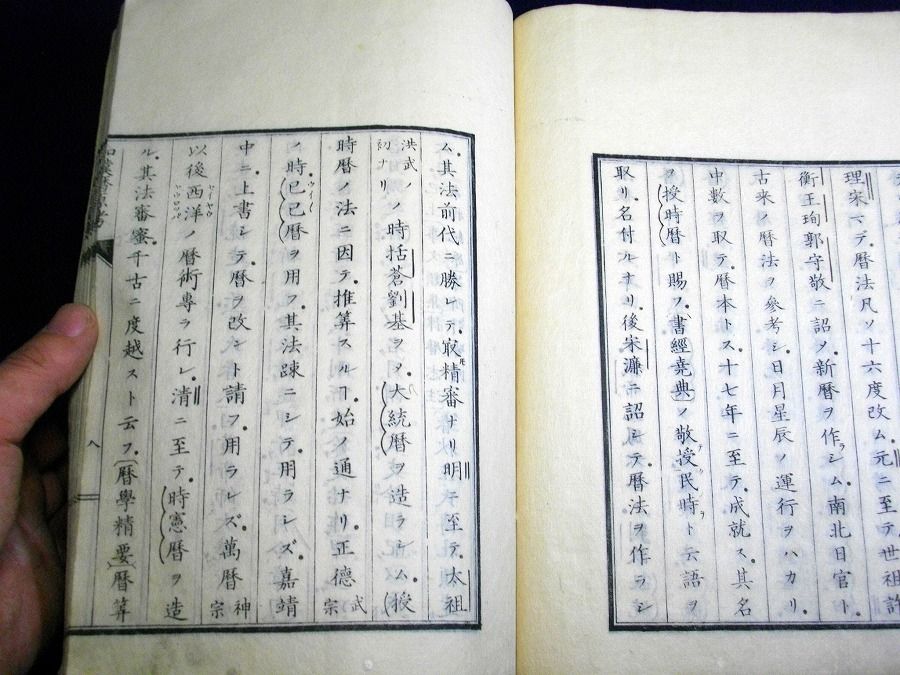 理宋マデ曆法凡ソ十六度改ム元ニ至テ世祖許
衡王珣郭守敬ニ詔ノ新曆ヲ作ラシム南北日官ト
古来ノ曆法ヲ參考シ日月星辰ノ運行ヲハカリ
中數ヲ取テ曆本トス十七年ニ至テ成就ス其名
ヲ授時曆ト賜フ書經堯典ノ敬授民時ト云語ヲ
取リ名付ルナリ後宋濂ニ詔シテ曆法ヲ作ラシ
ム其法前代ニ勝レテ㝡精審ナリ明ニ至テ太祖
洪武ノ初ナリノ時括蒼劉基ヲノ大統曆ヲ造ラシム(授
時曆ノ法ニ因テ推筭スルヿ始ノ通ナリ正德武宗
ノ時己巳曆ヲ用フ其法踈ニシテ用ラレズ嘉靖
中ニ上書シテ曆ヲ改ント請フ用ラレズ萬曆神宗
以後西洋ノ曆術專ラ行レ清ニ至テ時憲曆ヲ造
ル其法審蜜千古ニ度越スト云フ曆學精要曆筭